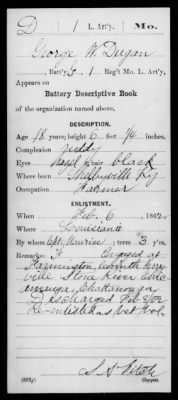 D | 1 | L. Art'y. | Mo.
George W. Dugan
, Batt'y G, 1 Reg't Mo. L. Art'y.
Appears on
Battery Descriptive Book
of the organization named above.
DESCRIPTION.
Age 18 years; height 6 feet ¼ inches.
Complexion ruddy
Eyes hazel; hair black
Where born Shelbyville Ky
Occupation Farmer
ENLISTMENT.
When Feb. 6, 186
Where Louisiana
By whom Capt. Maurice; term 3 y'rs.
Remarks: Engaged at
Farmington, Corinth Perry-
ville Stone River Chic-
amauga, Chattanooga
Discharged Feb
Re-enlisted as Vet. Vol.
(383g) Copyist.